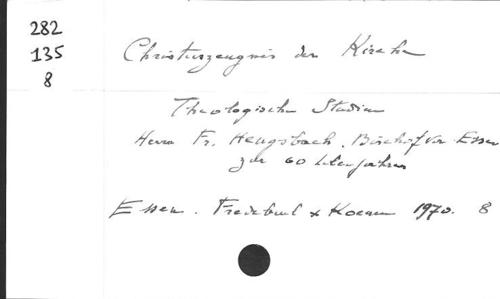 282
135
8
Christuszeugnis der Kirche
Theologische Studien
Herrn Fr. Hengsbach, Bischof von Essen
zur 60 lebensjahren
Essen. Fredebeul & Koenen 1970. 8